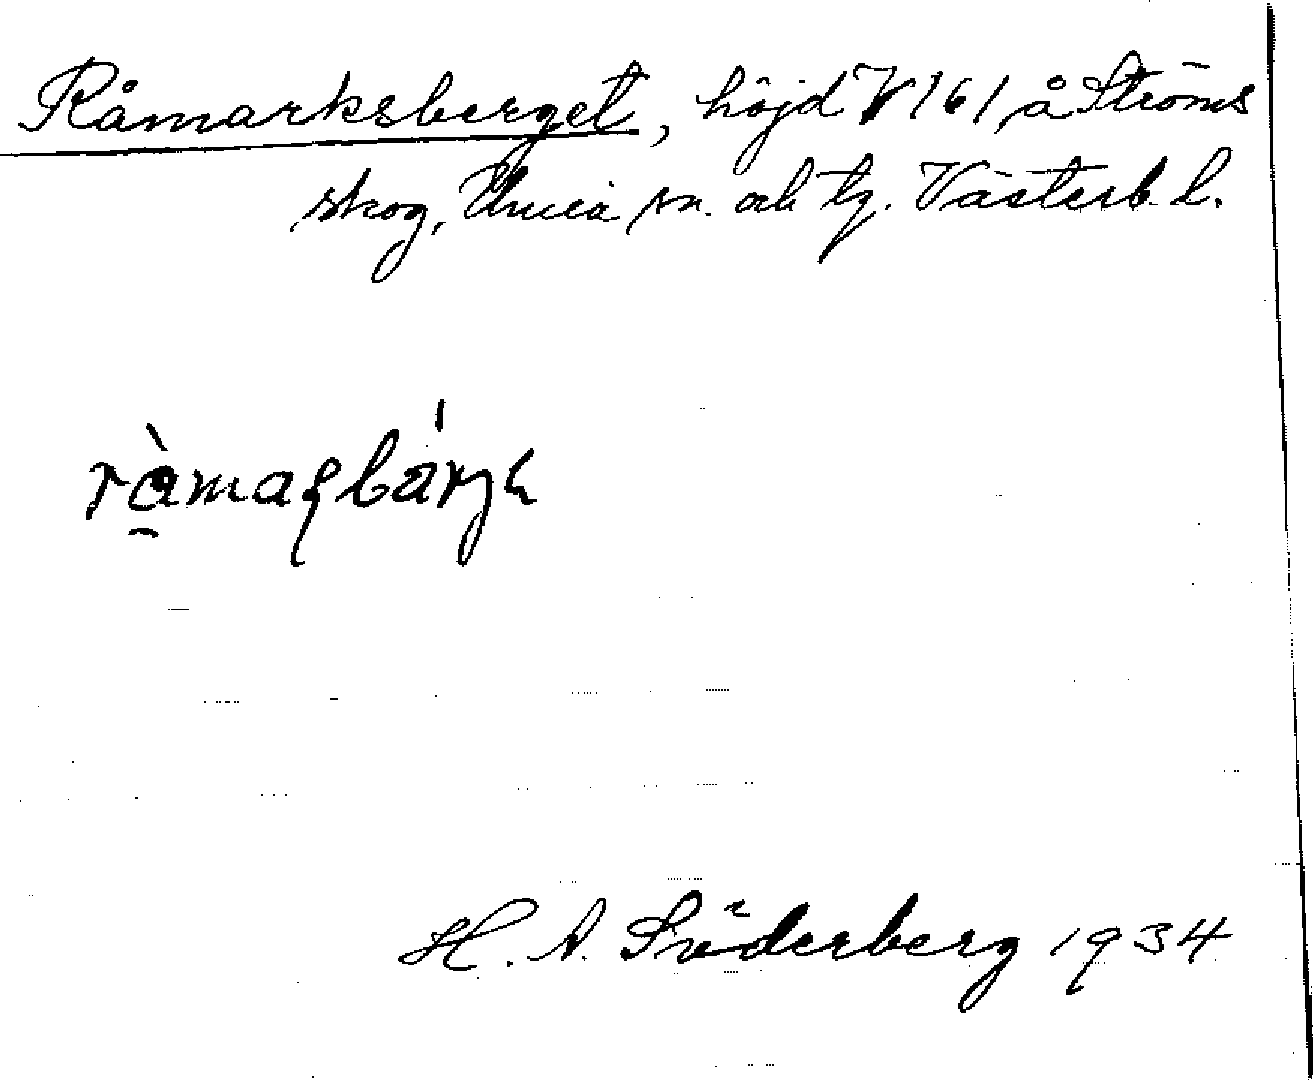 Råmarksberget, höjd V 161 å Ströms
skog, Umeå sn. och tg. Västerb. l.
H. A. Söderberg 1934